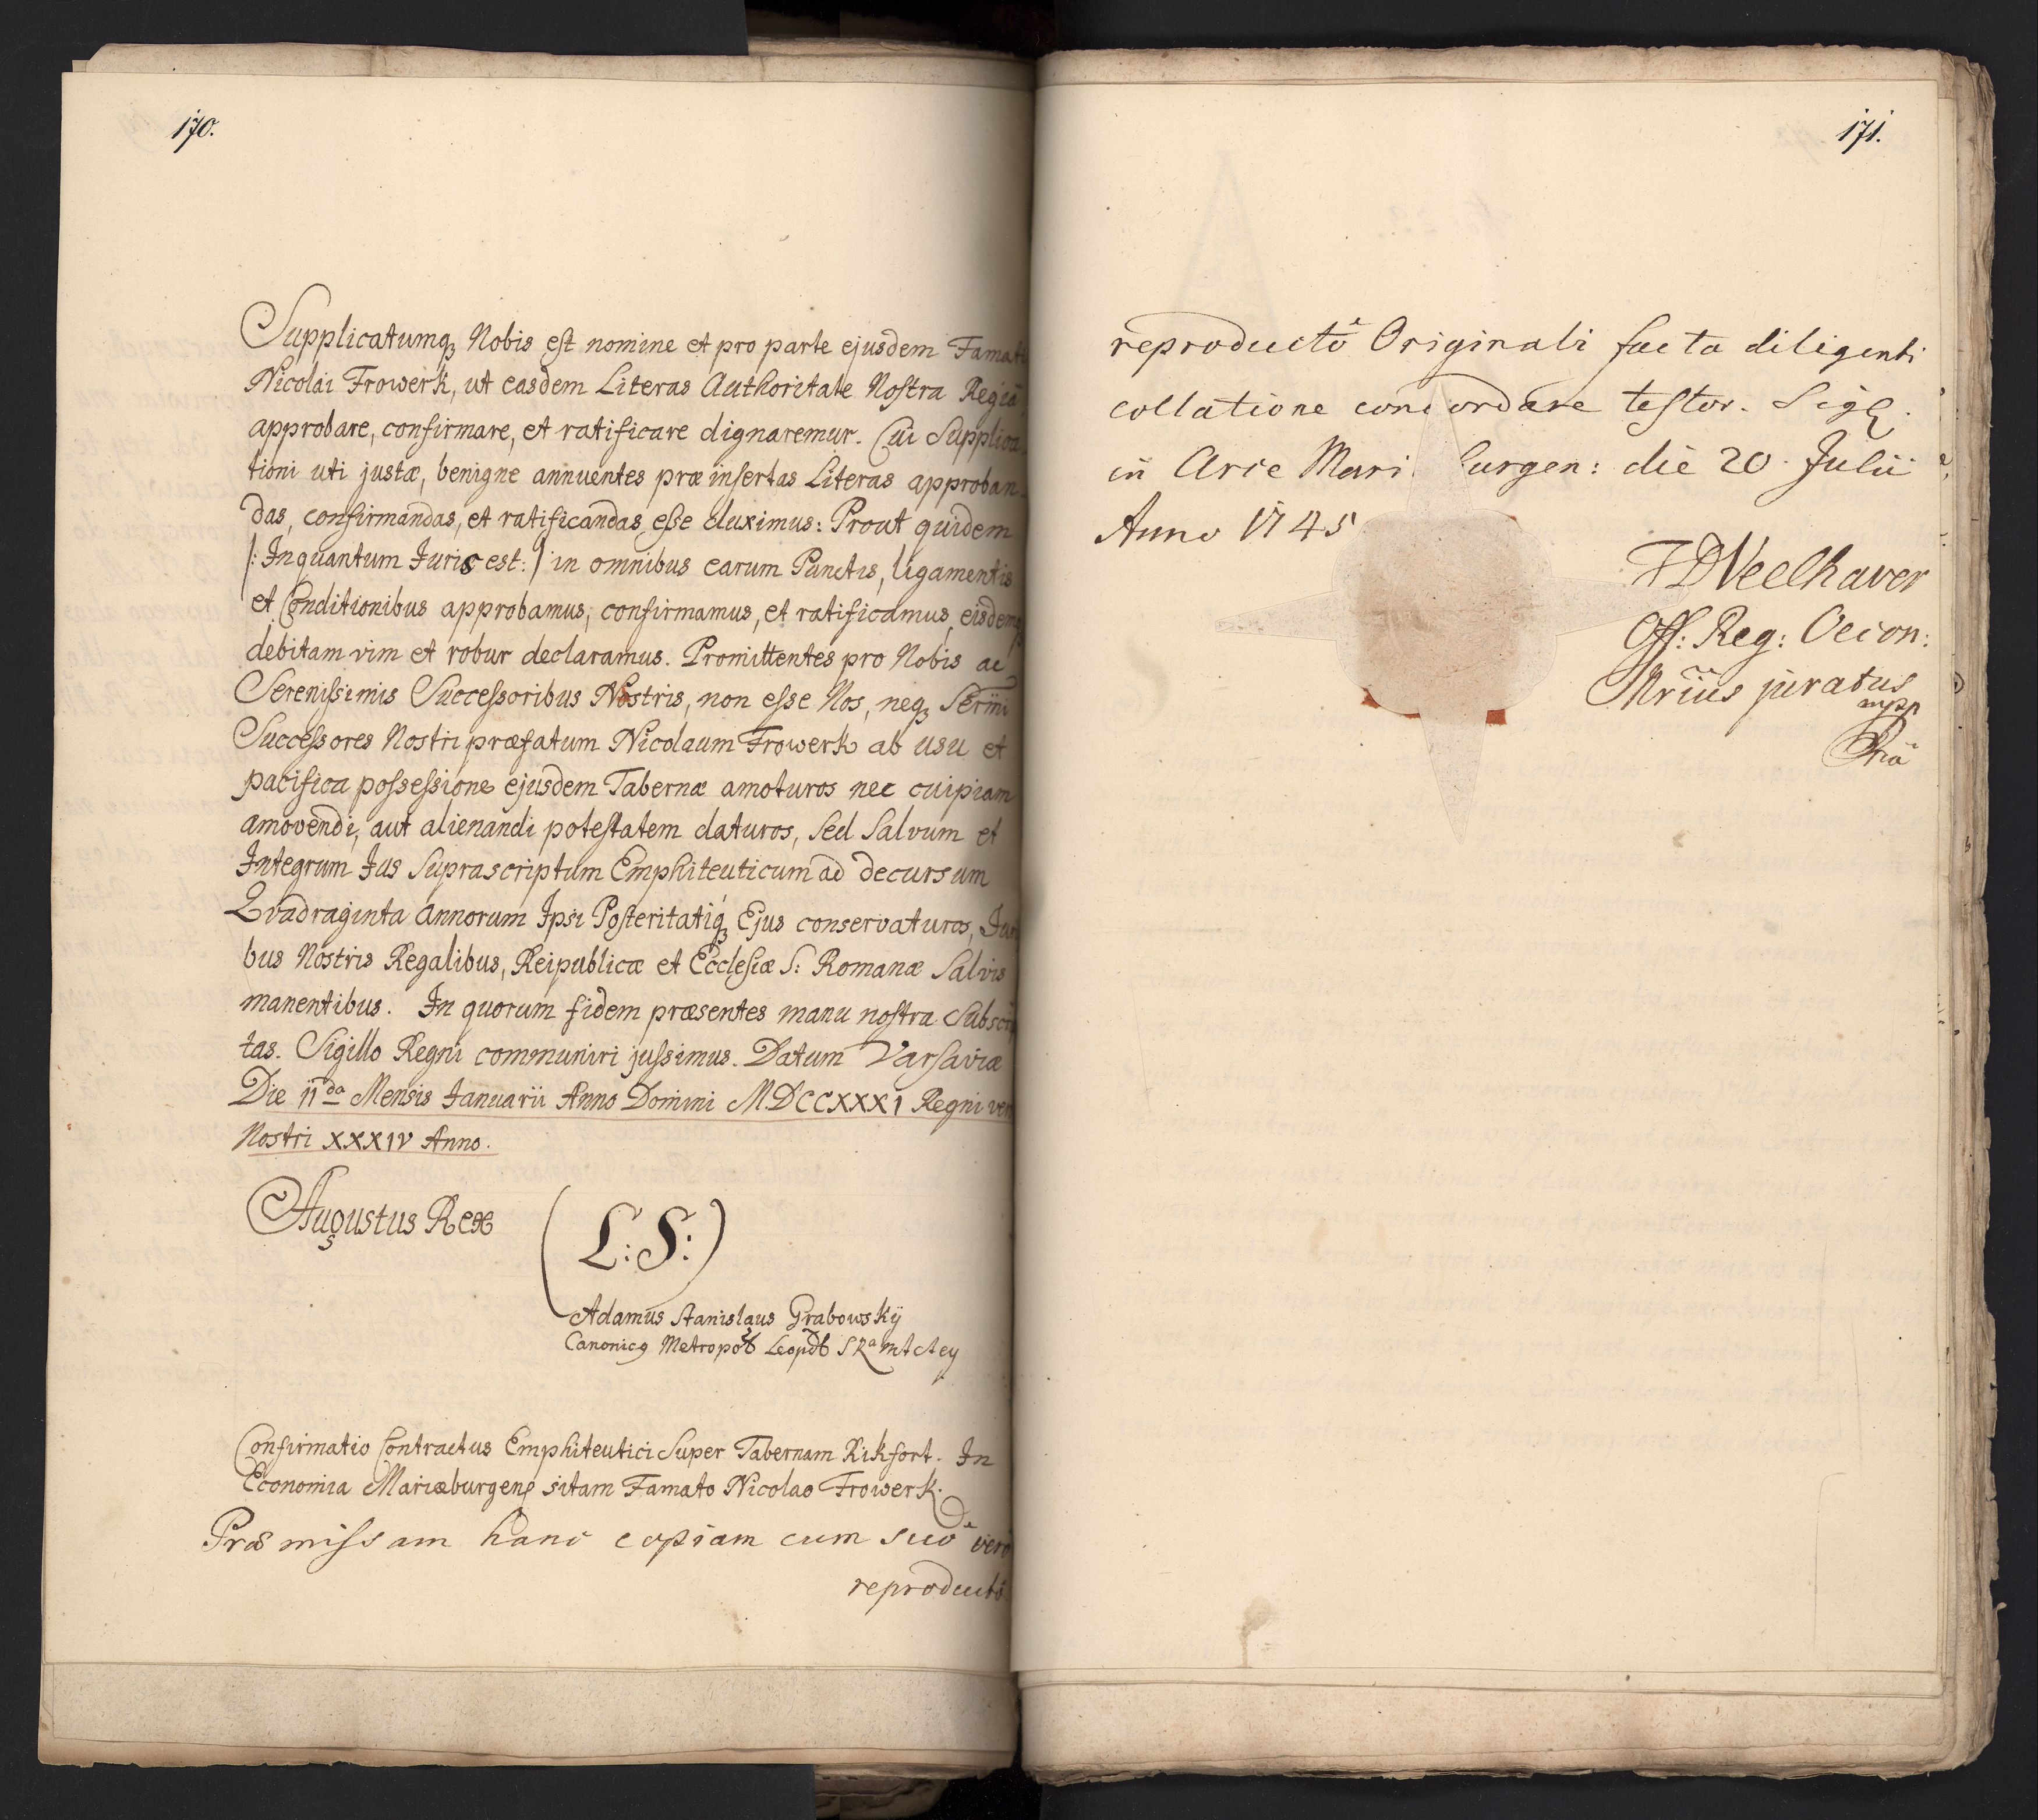 170.
Supplicatumq₃ Nobis est nomine et pro parte ejusdem Famati
Nicolai Frowerk, ut easdem Literas Authoritate Nostra Regiâ
approbare, confirmare, et ratificare dignaremur. Cui Supplica
tioni uti justæ, benigne annuentes præ insertas Literas approban
das, confirmandas, et ratificandas esse duximus: Prout quidem
|: In quantum Juris est: | in omnibus earum Punctis, ligamentis
et Conditionibus approbamus, confirmamus, et ratificamus, eisdemq₃
debitam vim et robur declaramus. Promittentes pro Nobis ac
Serenissimis Successoribus Nostris, non esse Nos, neq₃ Serm̃i
Successores Nostri præfatum Nicolaum Frowerk ab usu et
pacifica possessione ejusdem Tabernæ amoturos nec cuipiam
amovendi, aut alienandi potestatem daturos, sed salvum et
Integrum Jus Suprascriptum Emphiteuticum ad decursum
Qvadraginta Annorum Ipsi Posteritatiq₃ Ejus conservaturos, Juri
bus Nostris Regalibus, Reipublicæ et Ecclesiæ S: Romanæ Salvis
manentibus. In quorum fidem præsentes manu nostra Subscrip
tas. Sigillo Regni communiri jussimus. Datum Varsaviæ
Die 11da Mensis Januarii Anno Domini MDCCXXXI Regni vero
Nostri XXXIV Anno.
Augustus Rex
(L:S:)
Adamus Stanislaus Grabowskÿ
Canonicq Metropol Leopol S Ra
Confirmatio Contractus Emphiteutici Super Tabernam Kikfort. In
Economia Mariæburgens sitam Famato Nicolao Frowerk.
Præmissam hanc copiam cum suô verô
reproductô
171.
reproductô Originali facta diligenti
collatione concordare testor. Sigl.
in Arce Mari burgen: die 20. Julii
Anno 1745
FDWeelhaver
Off: Reg: Oecon:
Nrius juratus
mpp